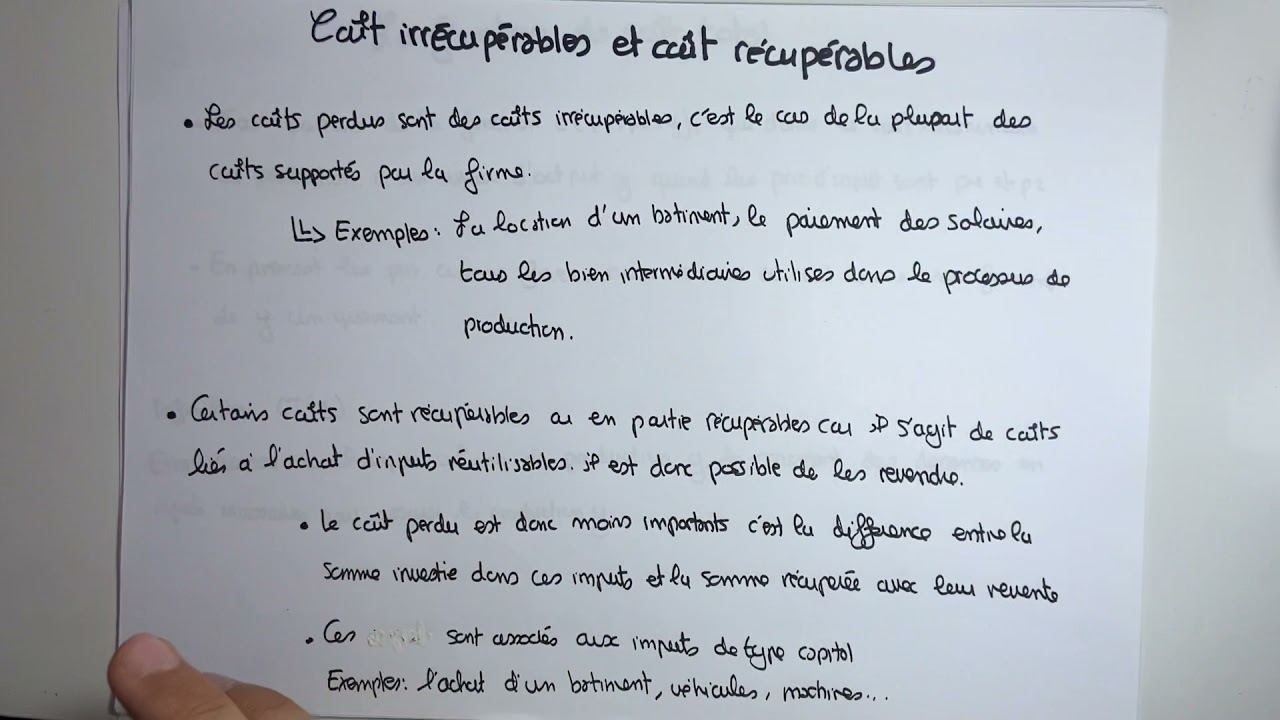 Coût irrécupérables et coût récupérables
• Les coûts perdus sont des coûts irrécupérables, c'est le cas de la plupart des
coûts supportés par la firme.
↳ Exemples: La location d'un batiment, le paiement des salaires,
tous les bien intermédiaires utilises dans le processus de
production.
• Certains coûts sont récupérables ou en partie récupérables car il s'agit de coûts
liés à l'achat d'inputs réutilisables. il est donc possible de les revendre.
• Le coût perdu est donc moins importants c'est la différence entre la
somme investie dans ces imputs et la somme récuperée avec leur revente
• Ces sont associés aux imputs de type capital
Exemples: l'achat d'un batiment, véhicules, machines...